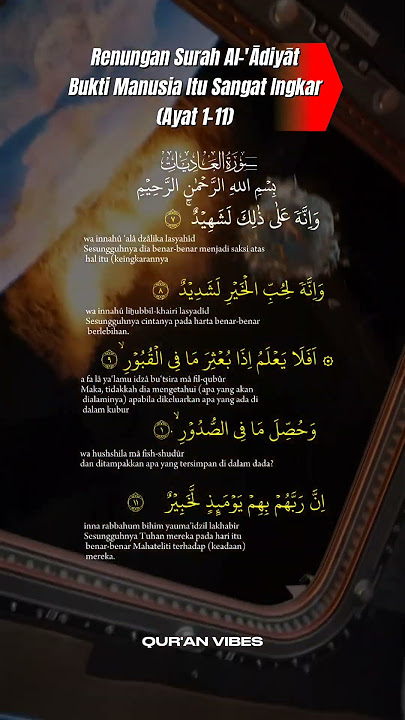 Renungan Surah Al-'Ādiyāt
Bukti Manusia Itu Sangat Ingkar
(Ayat 1-11)
سُورَةُ الْعَادِيَاتِ
بِسْمِ اللهِ الرَّحْمٰنِ الرَّحِيْمِ
وَاِنَّهٗ عَلٰى ذٰلِكَ لَشَهِيْدٌۚ ٧
wa innahû ‘alâ dzâlika lasyahîd
Sesungguhnya dia benar-benar menjadi saksi atas
hal itu (keingkarannya
وَاِنَّهٗ لِحُبِّ الْخَيْرِ لَشَدِيْدٌ ٨
wa innahû liḫubbil-khairi lasyadîd
Sesungguhnya cintanya pada harta benar-benar
berlebihan.
۞ اَفَلَا يَعْلَمُ اِذَا بُعْثِرَ مَا فِى الْقُبُوْرِۙ ٩
a fa lâ ya‘lamu idzâ bu‘tsira mâ fil-qubûr
Maka, tidakkah dia mengetahui (apa yang akan
dialaminya) apabila dikeluarkan apa yang ada di
dalam kubur
وَحُصِّلَ مَا فِى الصُّدُوْرِۙ ١٠
wa ḫushshila mâ fish-shudûr
dan ditampakkan apa yang tersimpan di dalam dada?
اِنَّ رَبَّهُمْ بِهِمْ يَوْمَىِٕذٍ لَّخَبِيْرٌ ١١
inna rabbahum bihim yauma'idzil lakhabîr
Sesungguhnya Tuhan mereka pada hari itu
benar-benar Mahateliti terhadap (keadaan)
mereka.
QUR'AN VIBES